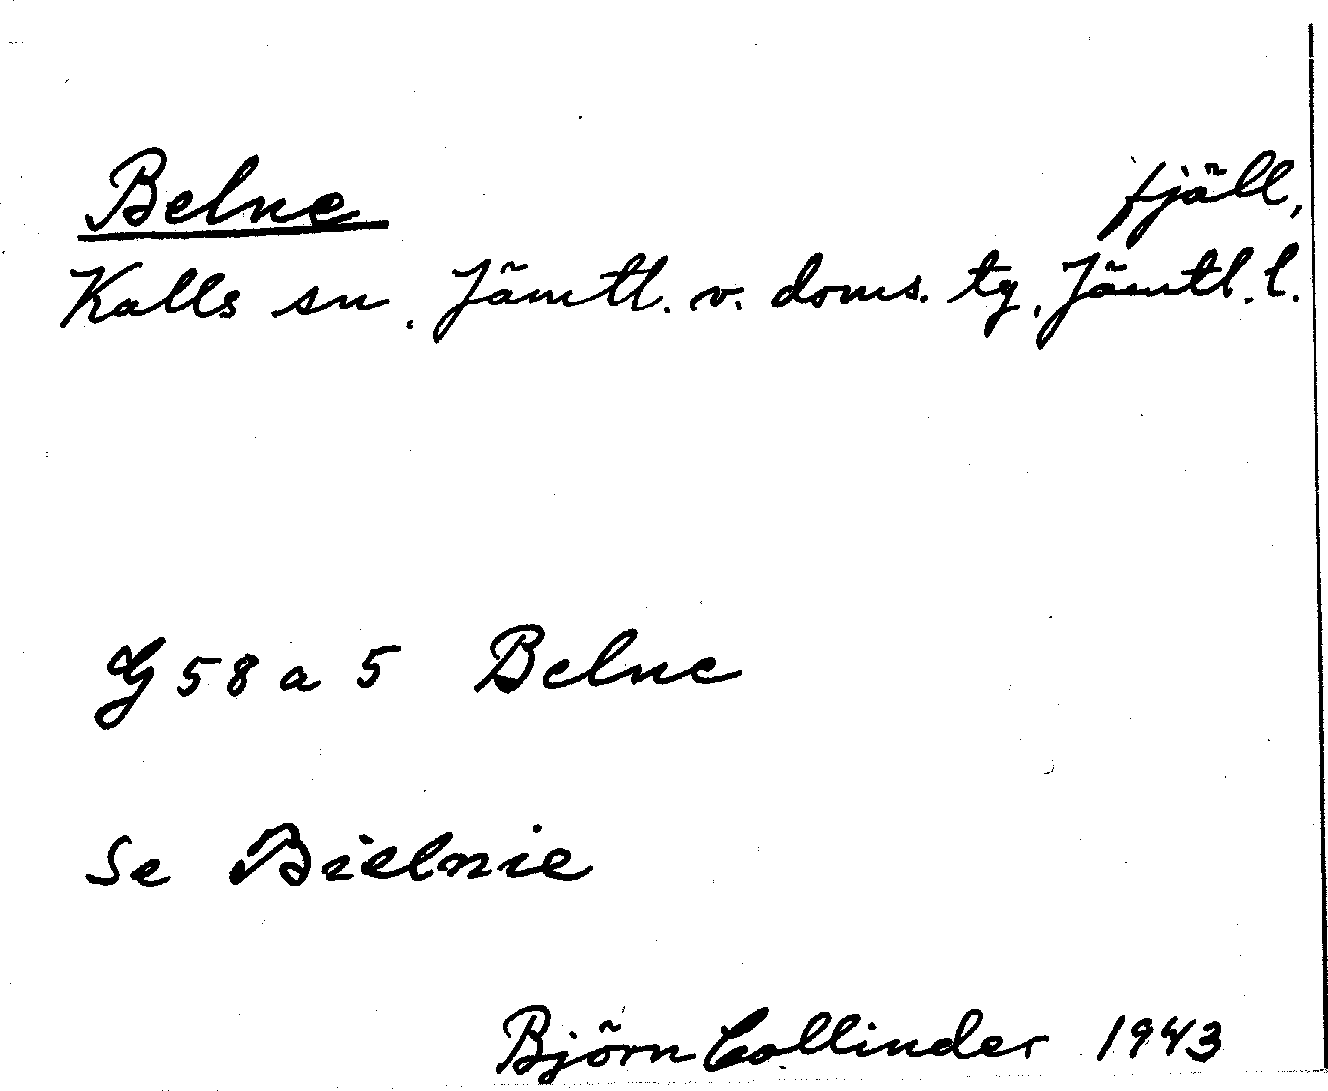 Belne fjäll,
Kalls sn, Jämtl. v. doms. tg, Jämtl. l.
G 58 a 5 Belne
Se Bielnie
Björn Collinder 1943